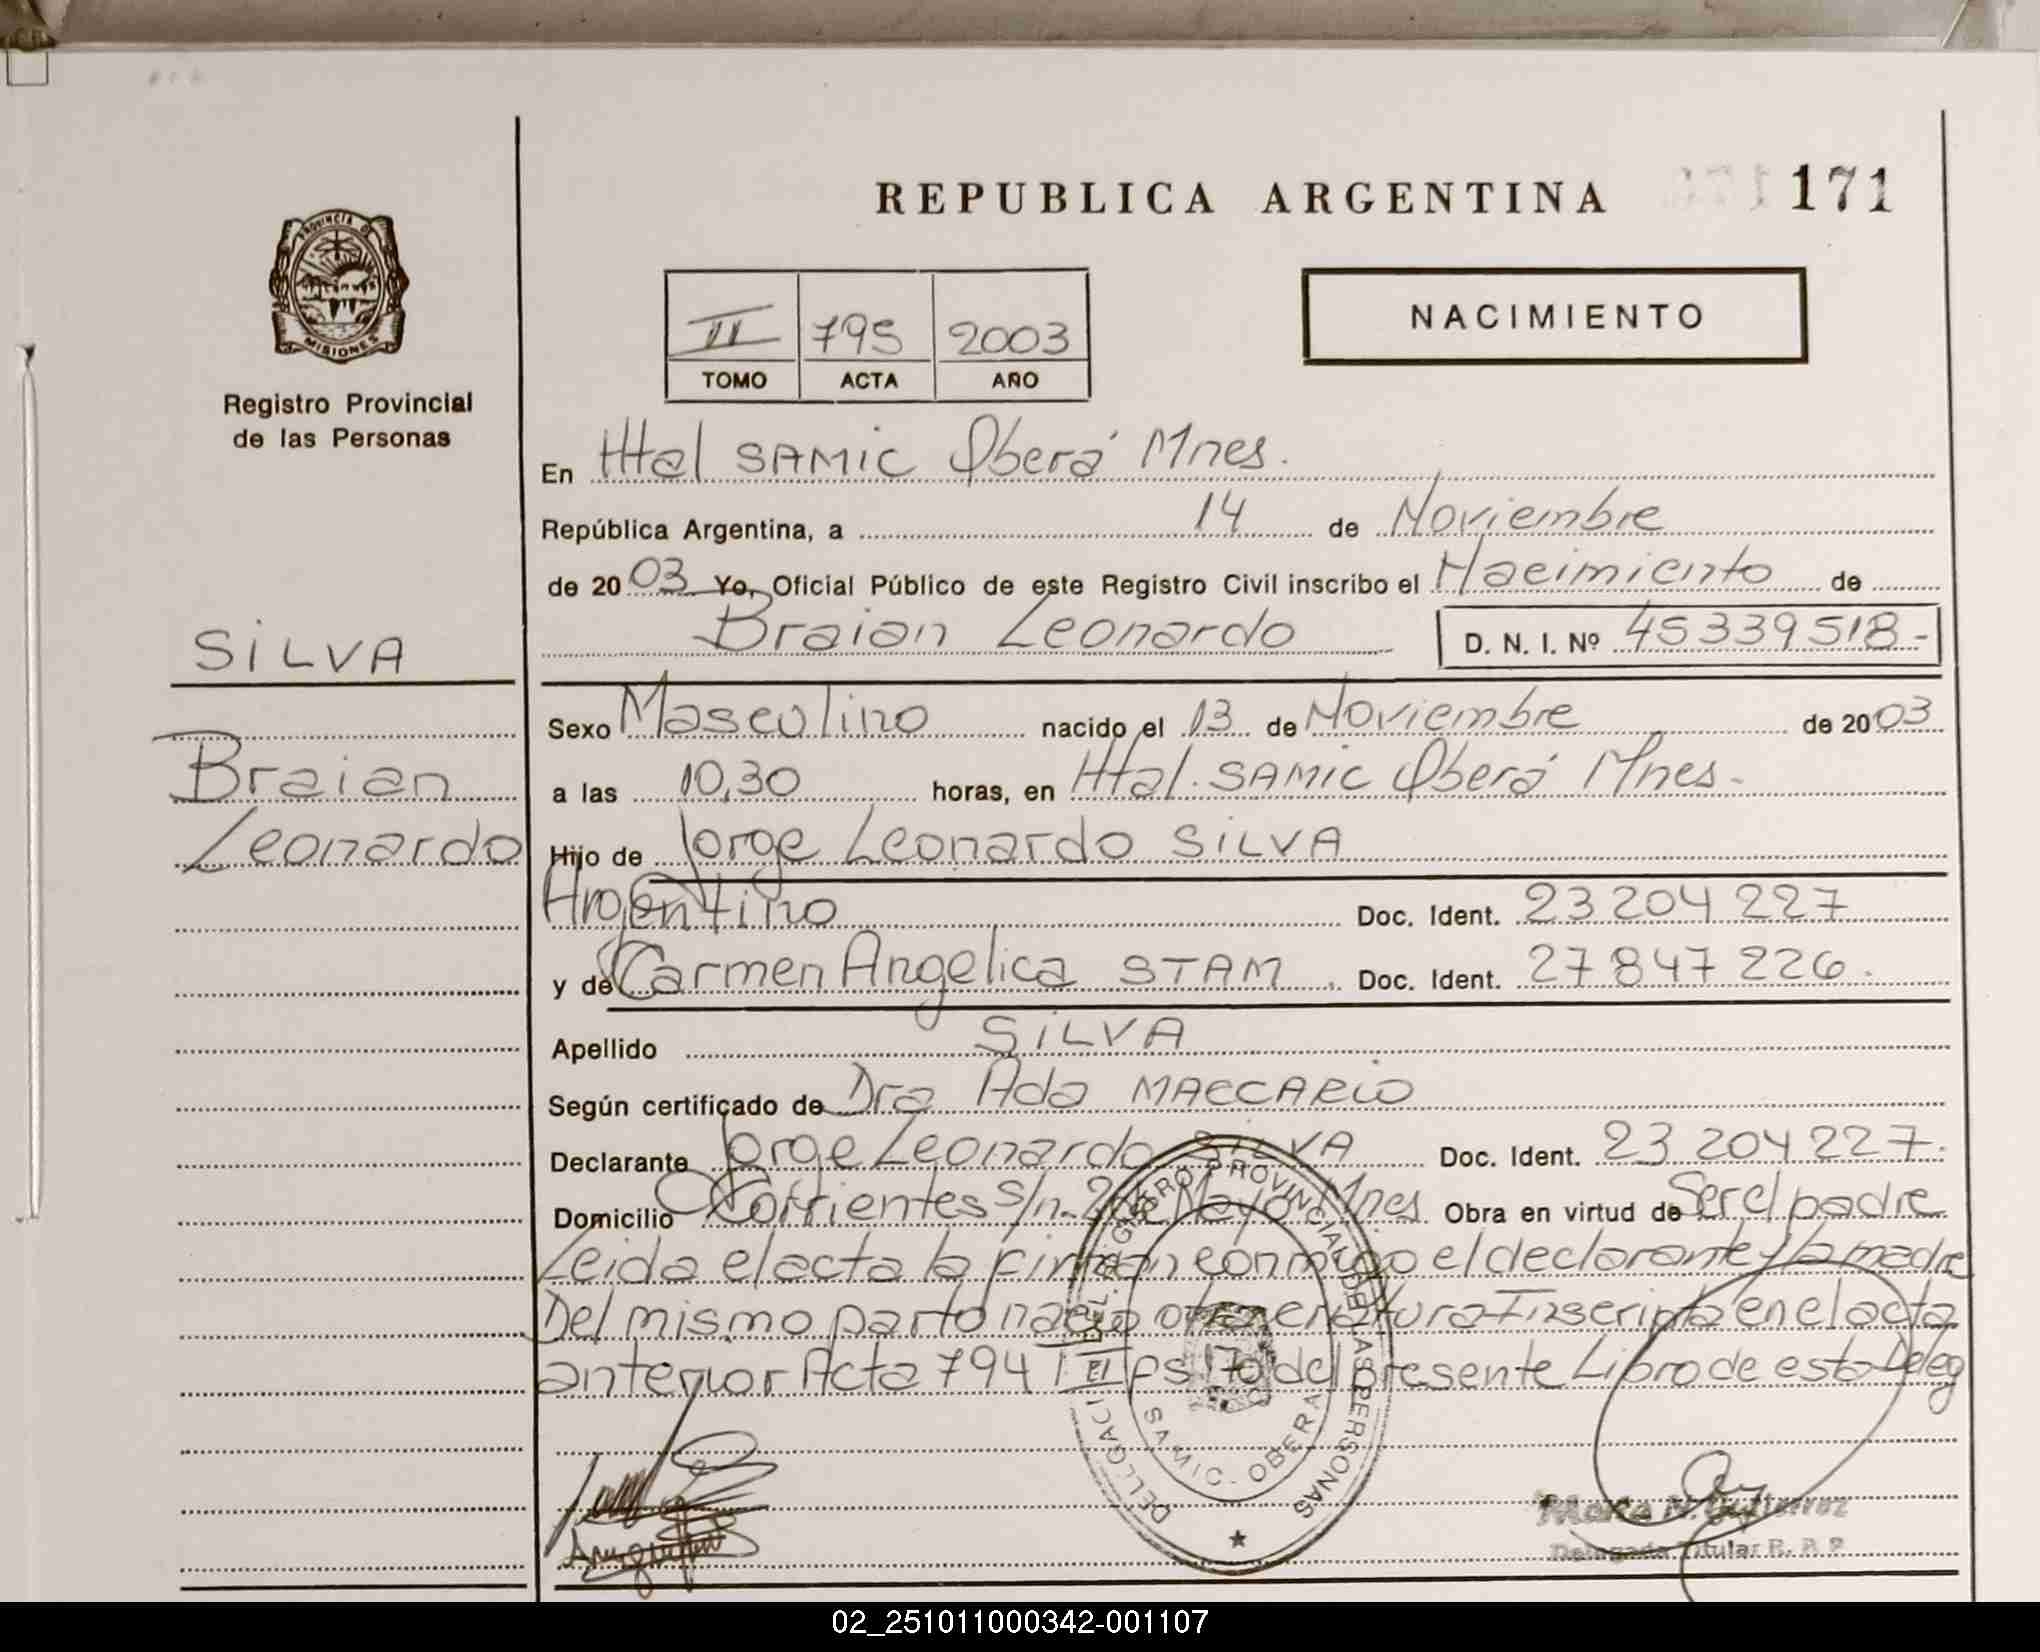 REPUBLICA ARGENTINA 171
PROVINCIA DE
MISIONES
Registro Provincial
de las Personas
NACIMIENTO
II 795 2003
TOMO ACTA AÑO
En Htal SAMIC Oberá Mnes.
República Argentina, a 14 de Noviembre
de 2003 Yo, Oficial Público de este Registro Civil inscribo el Nacimiento de
Braian Leonardo D. N. I. Nº 45339518-
SILVA
Braian
Leonardo
Sexo Masculino nacido el 13 de Noviembre de 2003
a las 10,30 horas, en Htal. SAMIC Oberá Mnes-
Hijo de Jorge Leonardo SILVA
Argentino Doc. Ident. 23 204 227
y de Carmen Angelica STAM Doc. Ident. 27 847 226.
Apellido SILVA
Según certificado de Dra Ada MACCARIO
Declarante Jorge Leonardo SILVA Doc. Ident. 23 204 227.
Domicilio Corrientes s/n. 2 de Mayo Mnes Obra en virtud de Ser el padre
Leida el acta la firman conmigo el declarante y la madre
Del mismo parto nacio otra criatura Inscripta en el acta
anterior Acta 794 T II Fs 170 del presente Libro de esta Deleg
REGISTRO PROVINCIAL DE LAS PERSONAS
SAMIC - OBERA
Marta N. Gutierrez
Delegada Titular R. P. P
02_251011000342-001107